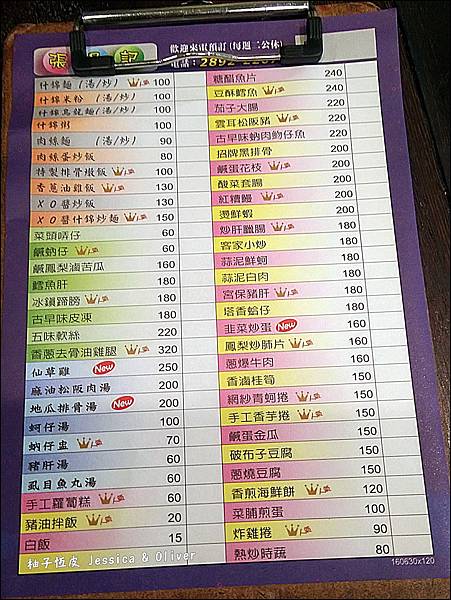 張 記
歡迎來電預訂(每週二公休)
電話:2892-2207
什錦麵 (湯/炒) 100
什錦米粉 (湯/炒) 100
什錦烏龍麵(湯/炒) 100
什錦粥 100
肉絲麵 (湯/炒) 90
肉絲蛋炒飯 80
特製排骨燉飯 100
香蔥油雞飯 130
XO醬炒飯 130
XO醬什錦炒麵 150
菜頭啨仔 60
鹹蚋仔 60
鹹鳳梨滷苦瓜 160
鱈魚肝 180
冰鎮蹄膀 180
古早味皮凍 180
五味軟絲 220
香蔥去骨油雞腿 320
仙草雞 250
麻油松阪肉湯 200
地瓜排骨湯 New 200
蚵仔湯 100
蚋仔盅 70
豬肝湯 60
虱目魚丸湯 60
手工蘿蔔糕 60
豬油拌飯 20
白飯 15
糖醋魚片 240
豆酥鱈魚 240
茄子大腸 220
雲耳松阪豬 220
古早味蚋肉魩仔魚 220
招牌黑排骨 200
鹹蛋花枝 200
酸菜套腸 200
紅糟鰻 200
燙鮮蝦 200
炒肝膶腸 180
客家小炒 180
蒜泥鮮蚵 180
蒜泥白肉 180
宮保豬肝 180
塔香蛤仔 180
韭菜炒蛋 New 160
鳳梨炒肺片 160
蔥爆牛肉 160
香滷桂筍 160
網紗青蚵捲 150
手工香芋捲 150
鹹蛋金瓜 150
破布子豆腐 150
蔥燒豆腐 150
香煎海鮮餅 120
菜脯煎蛋 100
炸雞捲 90
熱炒時蔬 80
160630x120
柚子恆皮 Jessica & Oliver